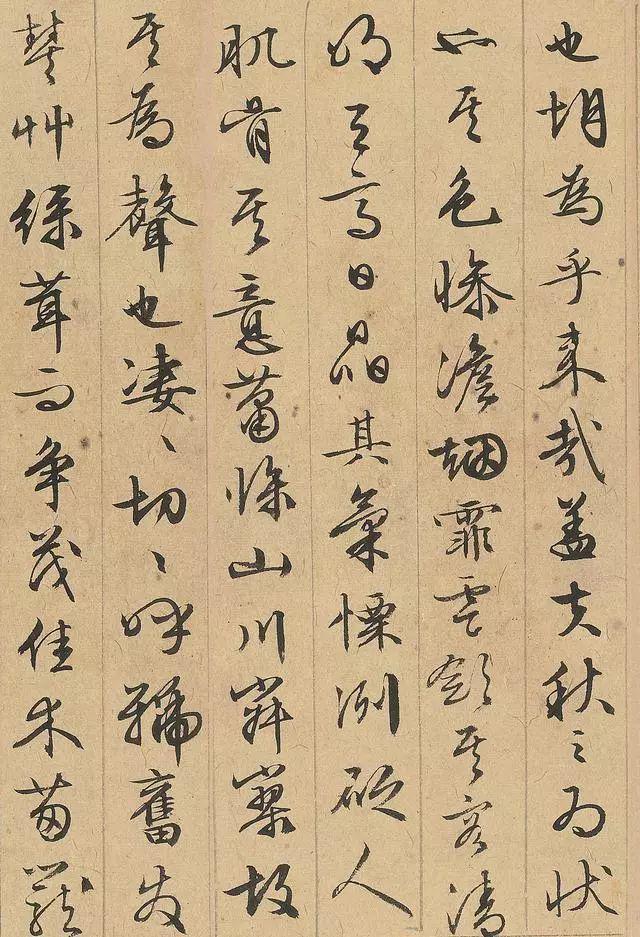 也胡為乎来哉蓋夫秋之為狀
也其色惨澹烟霏雲斂其容清
明天高日晶其氣慄冽砭人
肌骨其意蕭條山川寂寥故
其為聲也淒〻切〻呼號奮发
豐艸緑茸而争茂佳木葱蘢